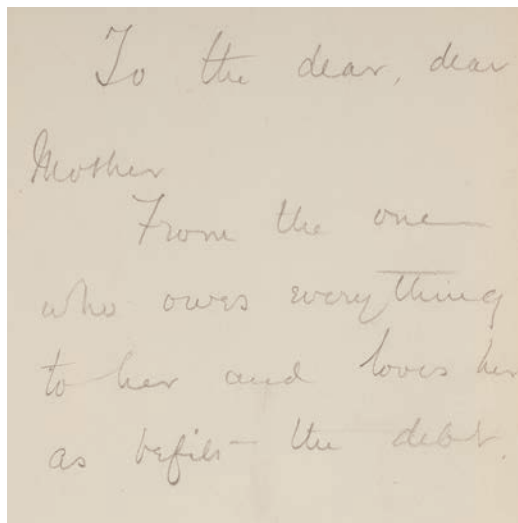 To the dear, dear
Mother
From the one
who owes everything
to her and loves her
as befits the debt.